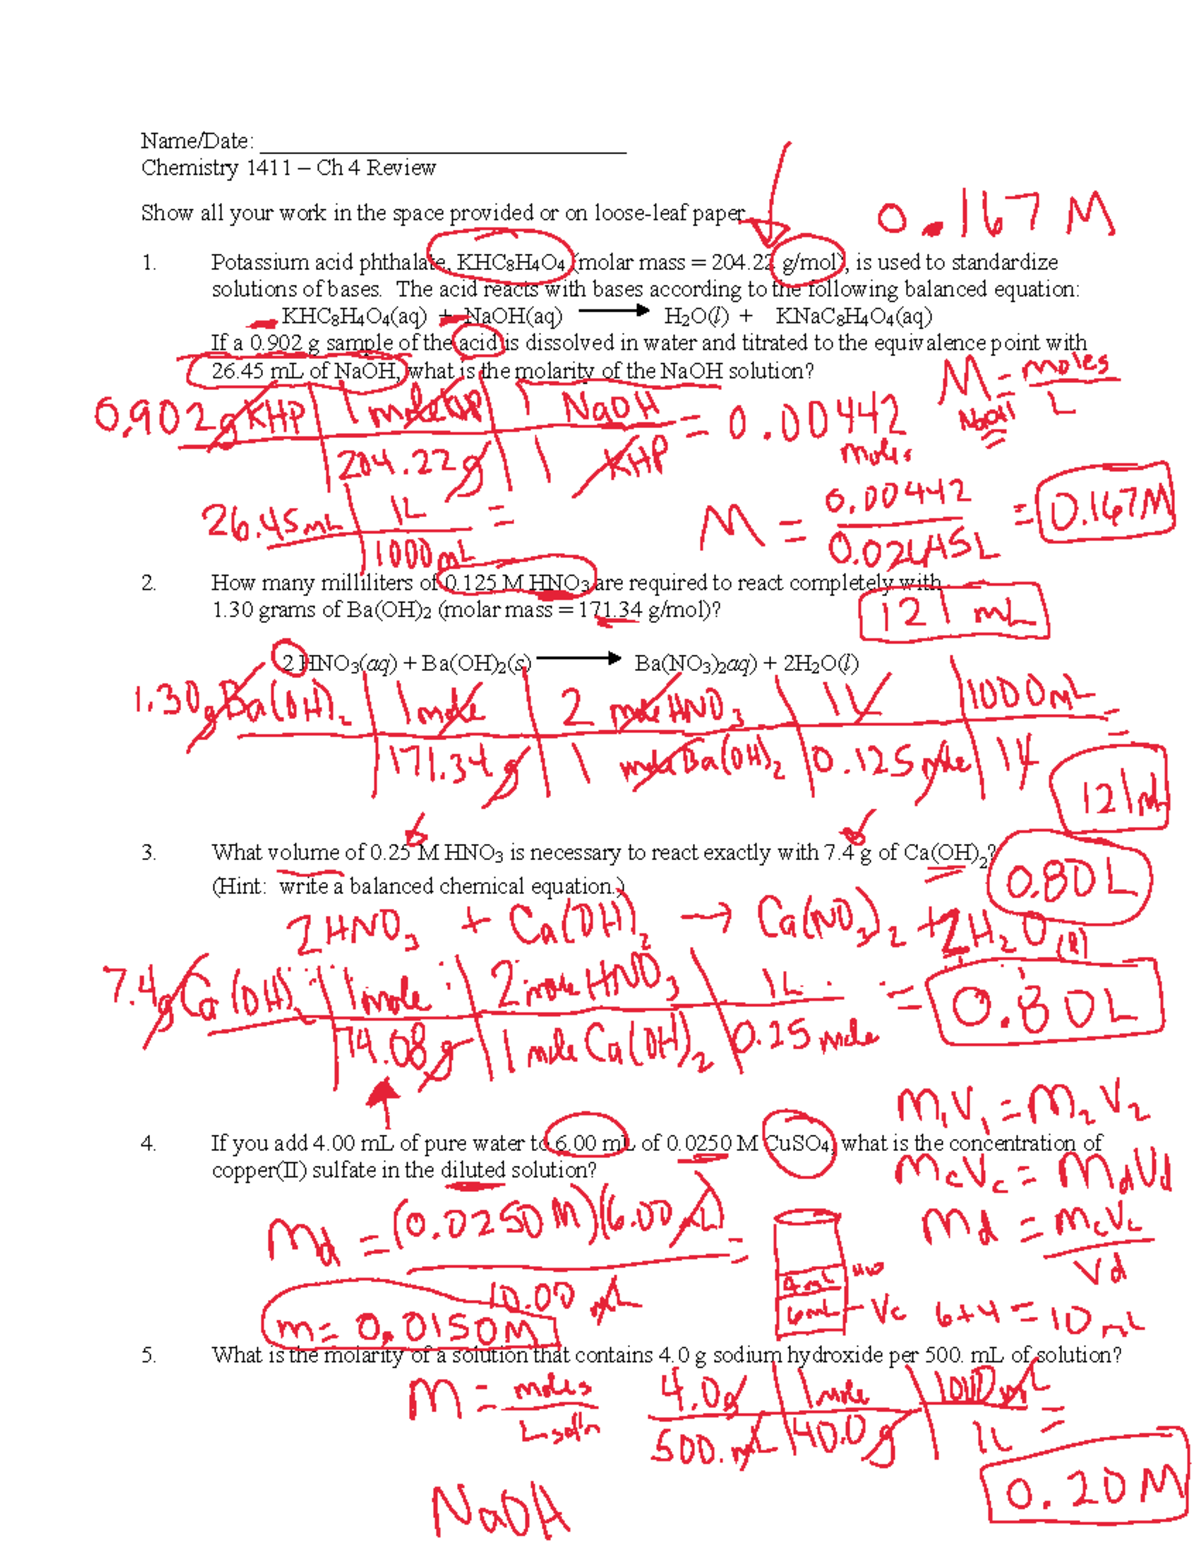 Name/Date: ________________________________
Chemistry 1411 – Ch 4 Review
Show all your work in the space provided or on loose-leaf paper.
0.167 M
1. Potassium acid phthalate, KHC8H4O4 (molar mass = 204.22 g/mol), is used to standardize
solutions of bases. The acid reacts with bases according to the following balanced equation:
KHC8H4O4(aq) + NaOH(aq) → H2O(l) + KNaC8H4O4(aq)
If a 0.902 g sample of the acid is dissolved in water and titrated to the equivalence point with
26.45 mL of NaOH, what is the molarity of the NaOH solution?
M = moles
NaOH L
0.902g KHP | 1 mole KHP | 1 NaOH = 0.00442
204.22g | 1 KHP moles
26.45 mL | 1L =
1000 mL
M = 0.00442 = 0.167M
0.02645L
2. How many milliliters of 0.125 M HNO3 are required to react completely with
1.30 grams of Ba(OH)2 (molar mass = 171.34 g/mol)?
121 mL
2 HNO3(aq) + Ba(OH)2(s) → Ba(NO3)2aq) + 2H2O(l)
1.30g Ba(OH)2 | 1 mole | 2 mole HNO3 | 1L | 1000mL =
171.34g | 1 mole Ba(OH)2 | 0.125 mole | 1L
121mL
3. What volume of 0.25 M HNO3 is necessary to react exactly with 7.4 g of Ca(OH)2?
(Hint: write a balanced chemical equation.)
0.80L
2HNO3 + Ca(OH)2 → Ca(NO3)2 + 2H2O(l)
7.4g Ca(OH)2 | 1 mole | 2 mole HNO3 | 1L = 0.80L
74.08g | 1 mole Ca(OH)2 | 0.25 mole
M1V1 = M2V2
4. If you add 4.00 mL of pure water to 6.00 mL of 0.0250 M CuSO4, what is the concentration of
copper(II) sulfate in the diluted solution?
McVc = MdVd
Md = McVc
Vd
Md = (0.0250 M)(6.00 mL) =
10.00 mL
m = 0.0150M
4mL
6mL – Vc
6+4 = 10 mL
5. What is the molarity of a solution that contains 4.0 g sodium hydroxide per 500. mL of solution?
M = moles
L sol'n
4.0g | 1 mole | 1000 mL =
500. mL | 40.0g | 1L
0.20M
NaOH